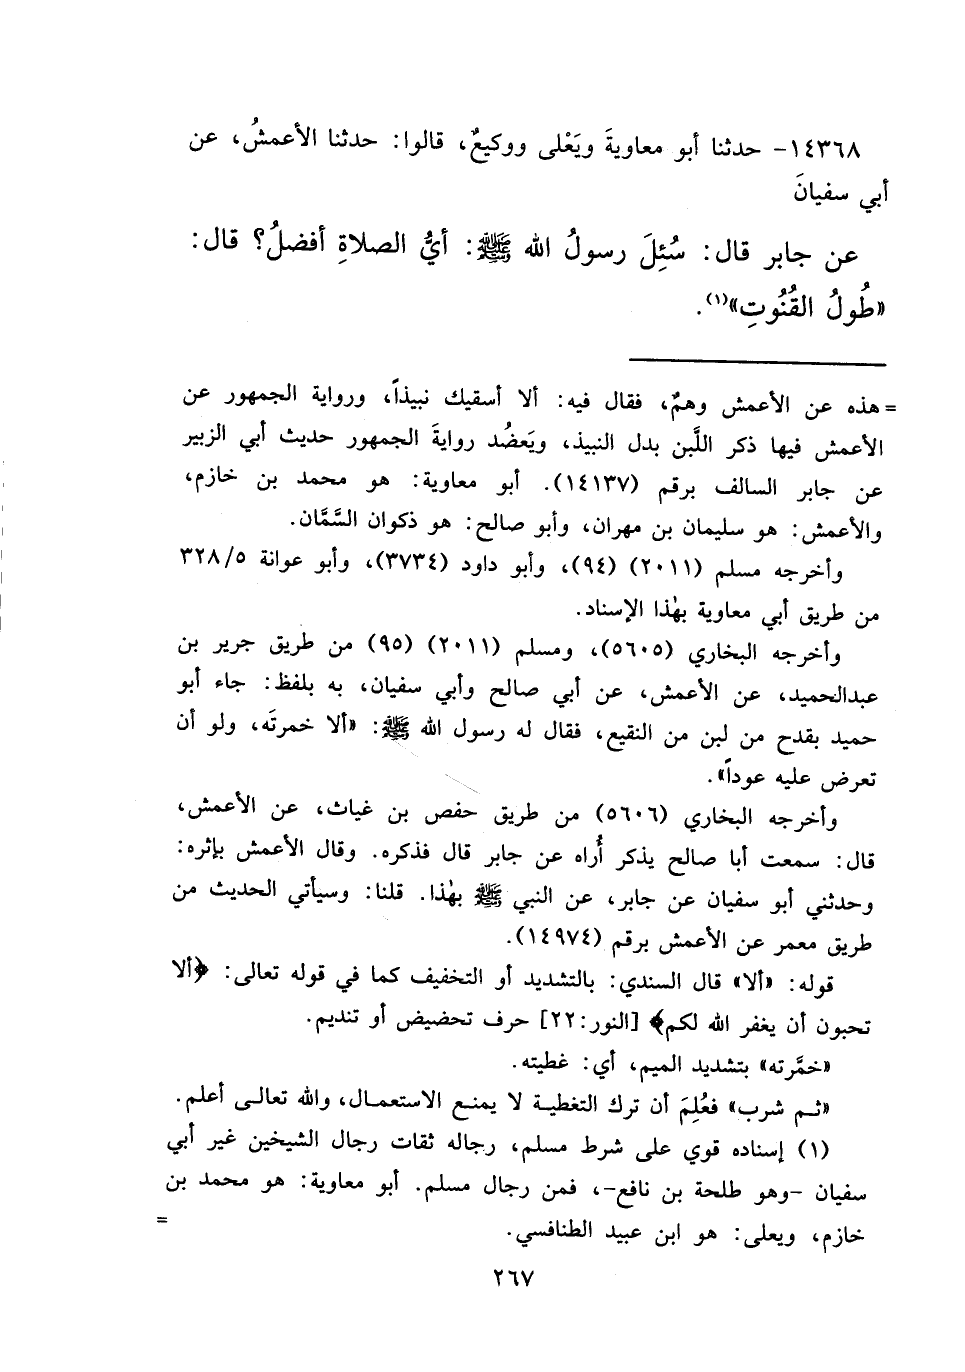 ١٤٣٦٨- حدثنا أبو معاويةَ ويَعْلى ووكيعٌ، قالوا: حدثنا الأعمشُ، عن
أبي سفيانَ
عن جابر قال: سُئِلَ رسولُ الله ﷺ: أيُّ الصلاةِ أفضلُ؟ قال:
«طُولُ القُنُوتِ»(١).
= هذه عن الأعمش وهمٌ، فقال فيه: ألا أسقيك نبيذاً، ورواية الجمهور عن
الأعمش فيها ذكر اللَّبن بدل النبيذ، ويَعضُد روايةَ الجمهور حديث أبي الزبير
عن جابر السالف برقم (١٤١٣٧). أبو معاوية: هو محمد بن خازم،
والأعمش: هو سليمان بن مهران، وأبو صالح: هو ذكوان السَّمَّان.
وأخرجه مسلم (٢٠١١) (٩٤)، وأبو داود (٣٧٣٤)، وأبو عوانة ٣٢٨/٥
من طريق أبي معاوية بهٰذا الإسناد.
وأخرجه البخاري (٥٦٠٥)، ومسلم (٢٠١١) (٩٥) من طريق جرير بن
عبدالحميد، عن الأعمش، عن أبي صالح وأبي سفيان، به بلفظ: جاء أبو
حميد بقدح من لبن من النقيع، فقال له رسول الله ﷺ: «ألا خمرتَه، ولو أن
تعرض عليه عوداً».
وأخرجه البخاري (٥٦٠٦) من طريق حفص بن غياث، عن الأعمش،
قال: سمعت أبا صالح يذكر أُراه عن جابر قال فذكره. وقال الأعمش بإثره:
وحدثني أبو سفيان عن جابر، عن النبي ﷺ بهٰذا. قلنا: وسيأتي الحديث من
طريق معمر عن الأعمش برقم (١٤٩٧٤).
قوله: «ألا» قال السندي: بالتشديد أو التخفيف كما في قوله تعالى: ﴿ألا
تحبون أن يغفر الله لكم﴾ [النور:٢٢] حرف تحضيض أو تنديم.
«خمَّرته» بتشديد الميم، أي: غطيته.
«ثم شرب» فعُلِمَ أن ترك التغطية لا يمنع الاستعمال، والله تعالى أعلم.
(١) إسناده قوي على شرط مسلم، رجاله ثقات رجال الشيخين غير أبي
سفيان -وهو طلحة بن نافع-، فمن رجال مسلم. أبو معاوية: هو محمد بن
خازم، ويعلى: هو ابن عبيد الطنافسي. =
٢٦٧